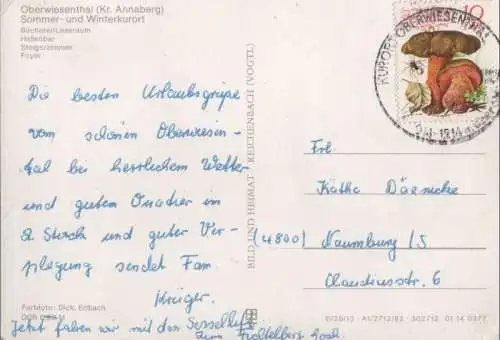 Oberwiesenthal (Kr. Annaberg)
Sommer- und Winterkurort
Bücherei/Leseraum
Hallenbar
Steigerzimmer
Foyer
Die besten Urlaubsgrüße
vom schönen Oberwiesen-
tal bei herrlichem Wetter
und gutem Quatier in
2. Stock und guter Ver-
pflegung sendet Fam.
Krüger.
Jetzt fahren wir mit den Sessellift
zum Fichtelberg hoch.
Farbfoto: Dick, Erlbach
BILD UND HEIMAT REICHENBACH (VOGTL)
10
KURORT OBERWIESENTHAL
Frl.
Käthe
(4800) Naumburg/S
Claudiusstr. 6
A1/2712/82 302712 01 14 0377